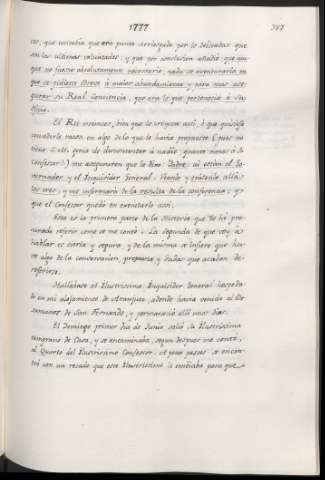 1777
387
ces, que concebia que era punto arriesgado por lo delicadas que
en las ultimas voluntades; y que por conclusion añadió que aun
que no fuese absolutamente necesario, nada se aventuraría en
que se pidiese Breve à mayor abundamiento y para mas ase-
gurar su Real Conciencia, que era lo que pertenecia à su
oficio.
El Rei entonces, bien que le urgiesen assi, ò que quisiese
concederle razon en algo de lo que le havia propuesto (pues no
tiene S. M. genio de desconcertar à nadie, quanto menos à su
Confesor) me aseguraron que le dixo: Padre, ai están el Go-
vernador, y el Inquisidor General. Veanlo y tratenlo allá
los tres, y me informaréis de la resulta de la conferencia; y
que el Confesor quedó en executarlo assi.
Esta es la primera parte de la Historia que he pro-
curado referir como se me contó. La segunda de que voy à
hablar es cierta y segura, y de la misma se infiere que hu-
vo algo de la conversacion, propuesta y dudas que acaban de
referirse.
Hallabase el Ilustrisimo Inquisidor General hospeda-
do en mi alojamiento de Aranjuez, adonde havia venido al Be-
samanos de San Fernando, y permaneció allí unos dias.
El Domingo primer dia de Junio salió Su Ilustrisima
temprano de Casa, y se encaminaba, segun despues me contó,
al Quarto del Ilustrisimo Confesor. A pocos pasos se encon-
tró con un recado que este Ilustrisimo le embiaba para que